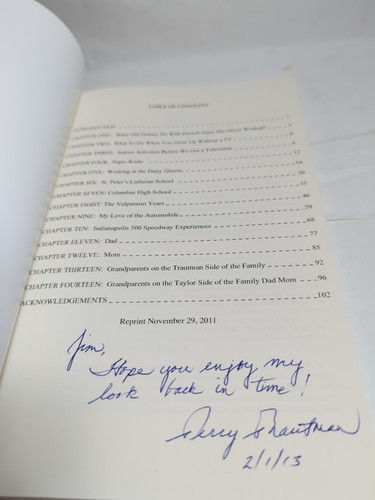 TABLE OF CONTENTS
INTRODUCTION 1
CHAPTER ONE: What Did Granny Do With Herself Since She Never Worked?
CHAPTER TWO: What To Do When You Grew Up Without a TV
CHAPTER THREE: Indoor Activities Before We Got a Television
CHAPTER FOUR: Paper Route
CHAPTER FIVE: Working at the Dairy Queen 16
CHAPTER SIX: St. Peter's Lutheran School 20
CHAPTER SEVEN: Columbus High School 35
CHAPTER EIGHT: The Valparaiso Years 46
CHAPTER NINE: My Love of the Automobile 59
CHAPTER TEN: Indianapolis 500 Speedway Experiences 68
CHAPTER ELEVEN: Dad 77
CHAPTER TWELVE: Mom 85
CHAPTER THIRTEEN: Grandparents on the Trautman Side of the Family 92
CHAPTER FOURTEEN: Grandparents on the Taylor Side of the Family Dad Mom 96
ACKNOWLEDGEMENTS 102
Reprint November 29, 2011
Jim,
Hope you enjoy my
look back in time!
Trautman
2/1/13